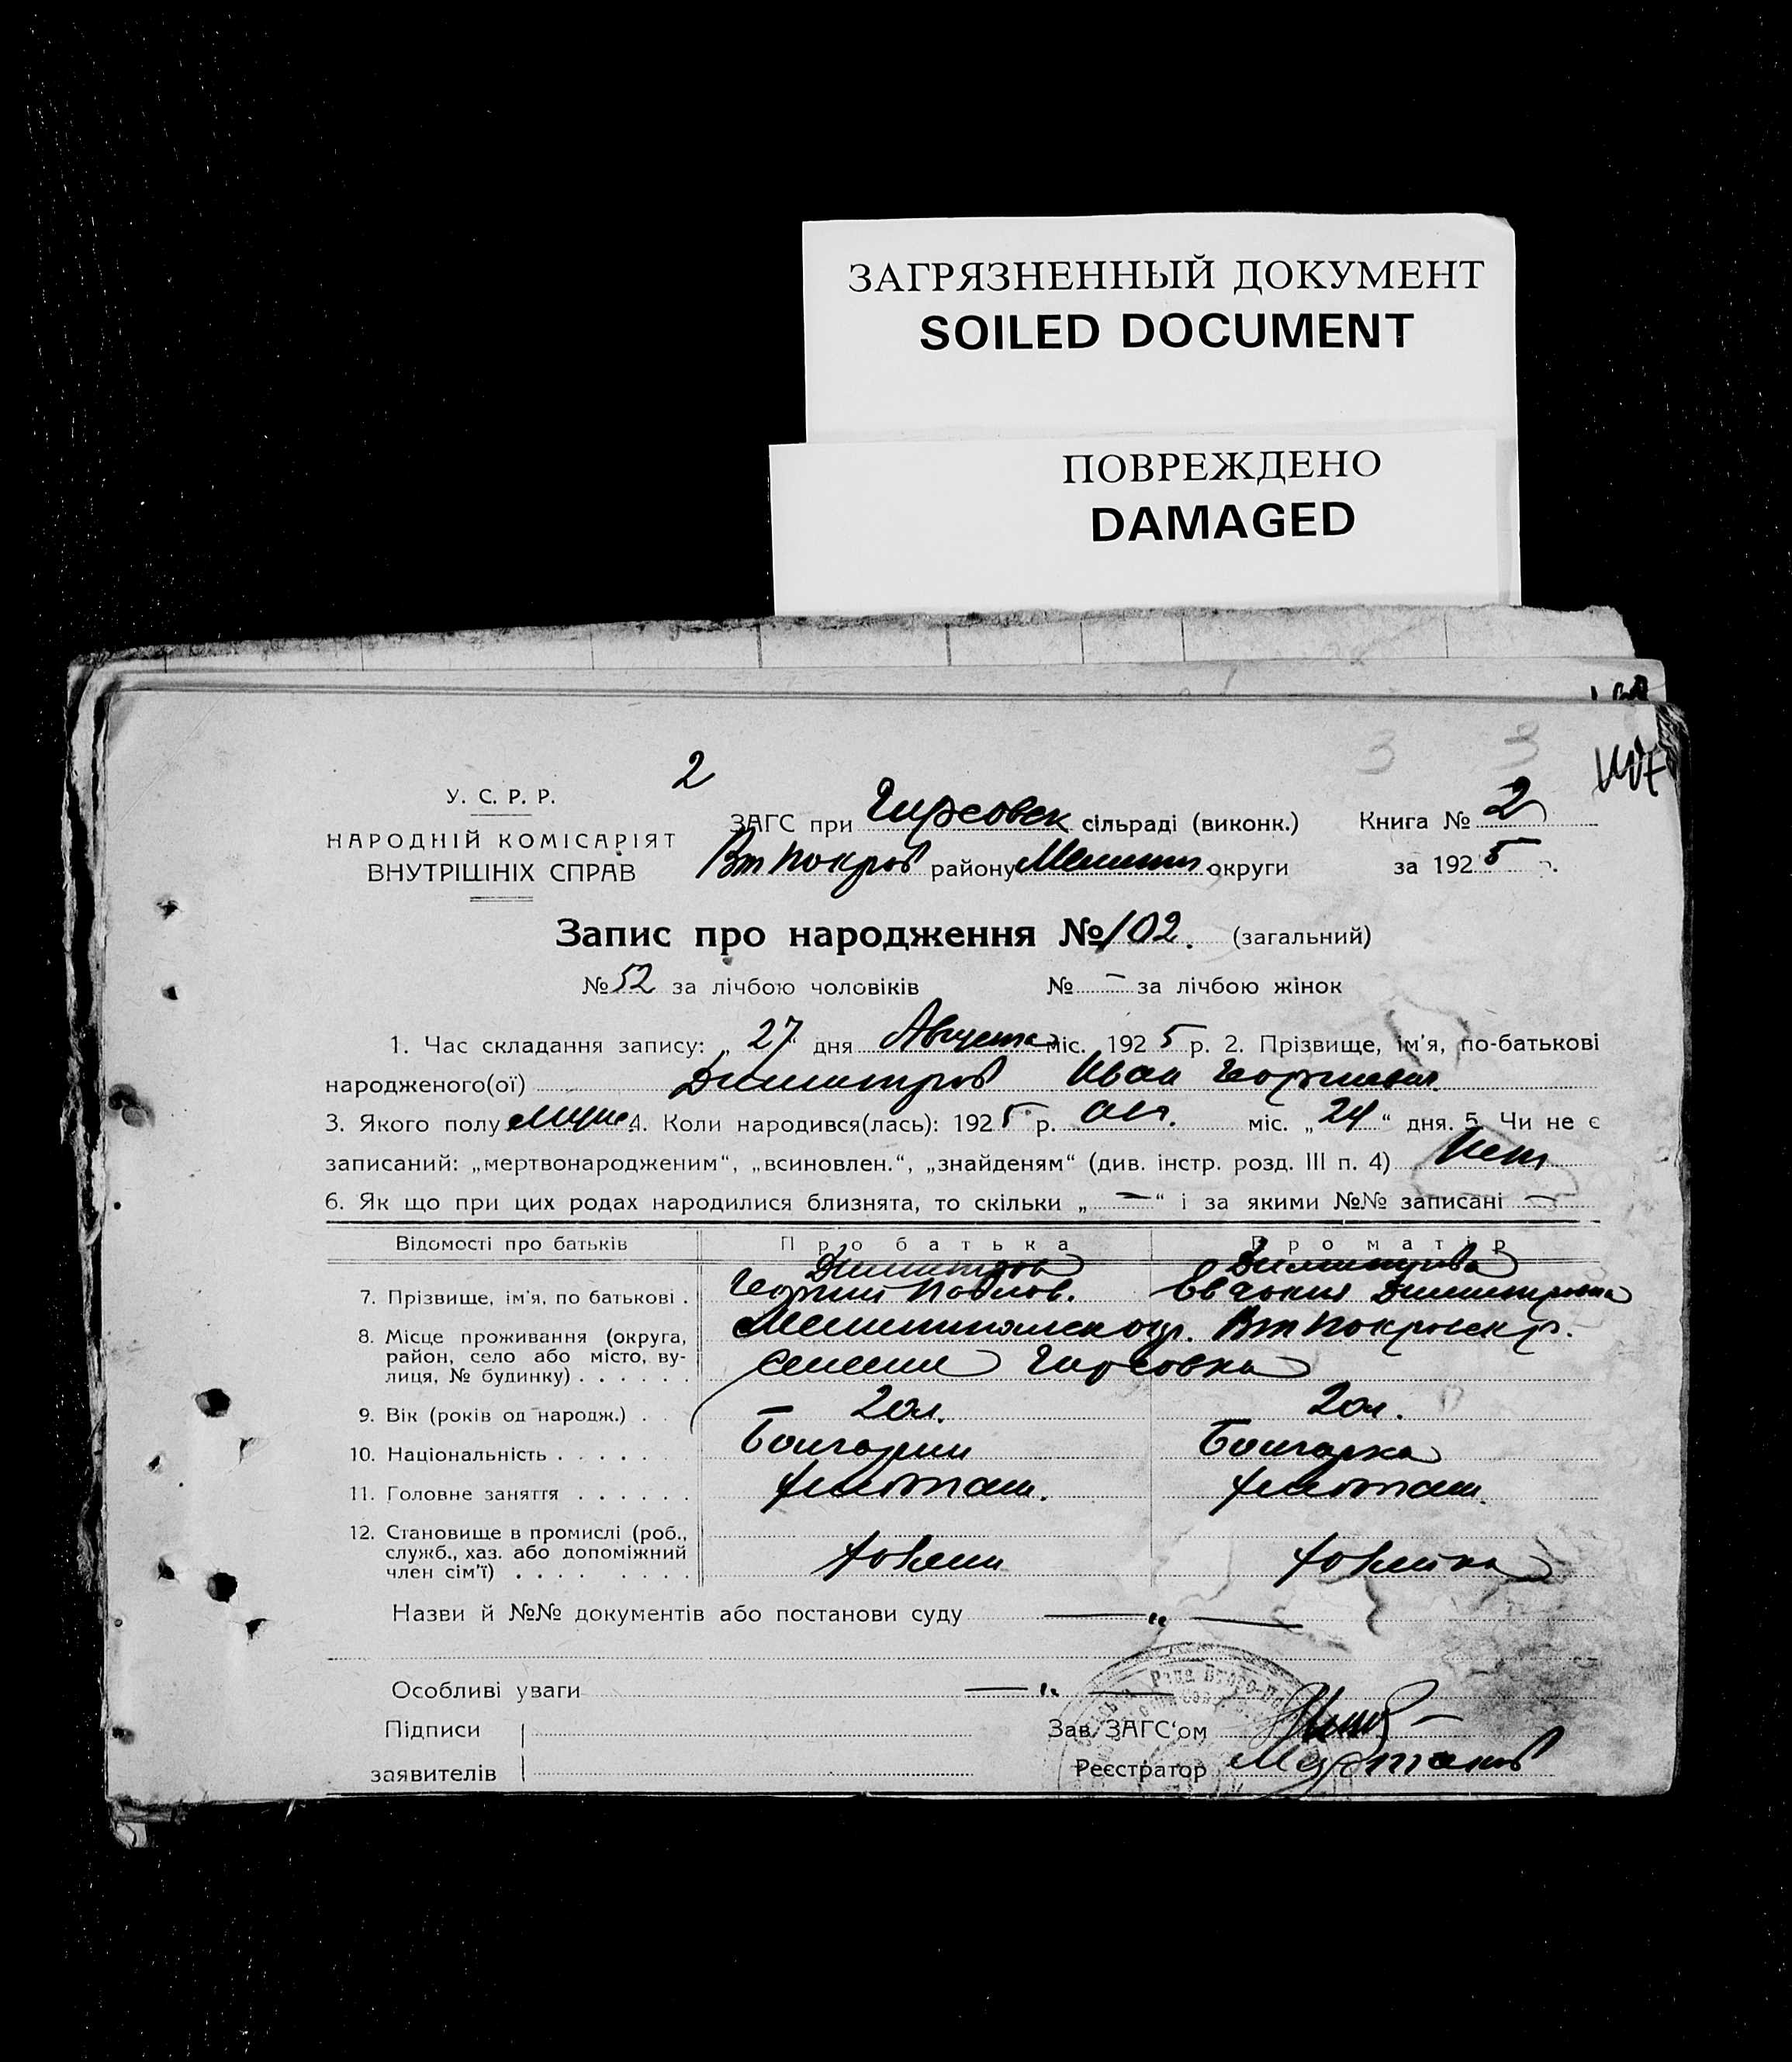 ЗАГРЯЗНЕННЫЙ ДОКУМЕНТ
SOILED DOCUMENT
ПОВРЕЖДЕНО
DAMAGED
3 3
2
У. С. Р. Р.
НАРОДНІЙ КОМІСАРІЯТ
ВНУТРІШНІХ СПРАВ
ЗАГС при Гирсовск сільраді (виконк.) Книга № 2
Вт Покров району Мелитоп округи за 1925 р.
Запис про народження № 102. (загальний)
№ 52 за лічбою чоловіків № – за лічбою жінок
1. Час складання запису: „27“ дня Августа міс. 1925 р. 2. Прізвище, ім'я, по-батькові
народженого(ої) Димитров Иван Георгиевич
3. Якого полу муж. 4. Коли народився(лась): 1925 р. авг. міс. „24“ дня. 5. Чи не є
записаний: „мертвонародженим“, „всиновлен.“, „знайденям“ (див. інстр. розд. III п. 4) Нет
6. Як що при цих родах народилися близнята, то скільки „ – “ і за якими №№ записані –
Відомості про батьків Про батька Про матір
Димитров Димитрова
7. Прізвище, ім'я, по батькові . Георгий Павлов. Евдокия Димитровна
8. Місце проживання (округа, район, село або місто, вулиця, № будинку) . . . . . . Мелитопольск окр. Вт Покровск р.
селение Гирсовка
9. Вік (років од народж.) . 20 л. 20 л.
10. Національність . . . . . . Болгарин Болгарка
11. Головне заняття . . . . . . хлебопаш. хлебопаш.
12. Становище в промислі (роб., служб., хаз. або допоміжний член сім'ї) . . . . . . . . хозяин хозяйка
Назви й №№ документів або постанови суду — „ —
Особливі уваги — „ —
Підписи
заявителів
Зав. ЗАГС'ом
Реєстратор